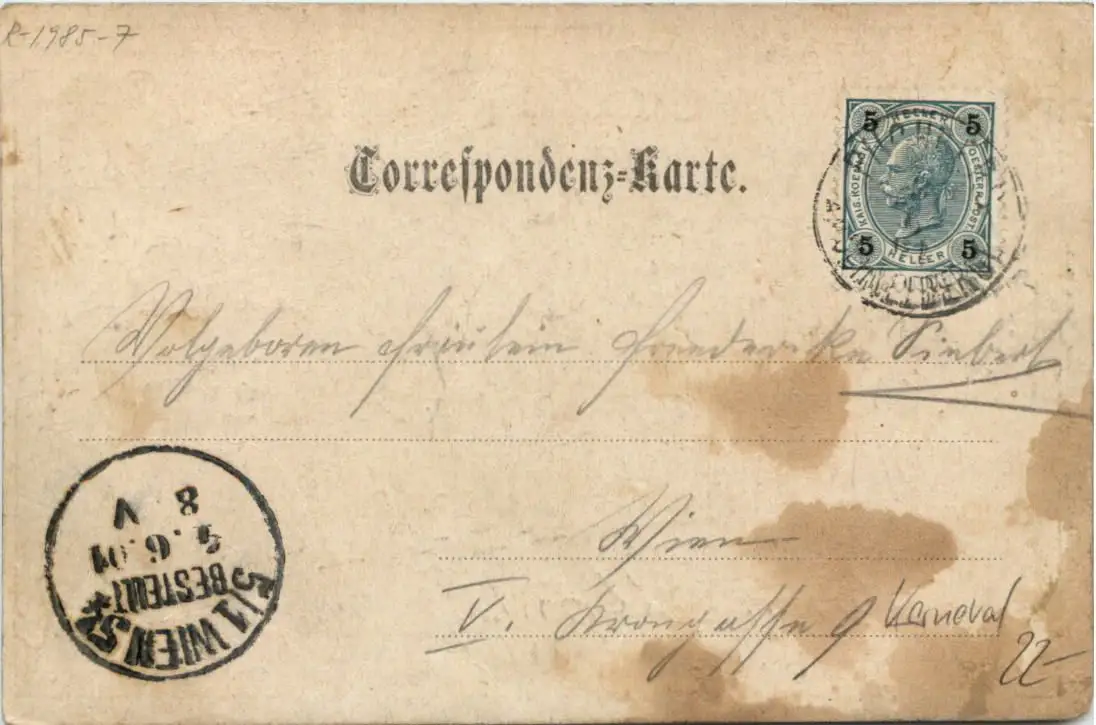 R-1985-7
Correspondenz-Karte.
5 HELLER 5
KAIS. KOENIGL. OESTERR. POST.
5 HELLER 5
Wolgeboren Fräulein Friederike Siebert
Wien
V. Krongasse 9
Kerneval
22-
8 V
6.01
BESTELLT
5/1 WIEN 52